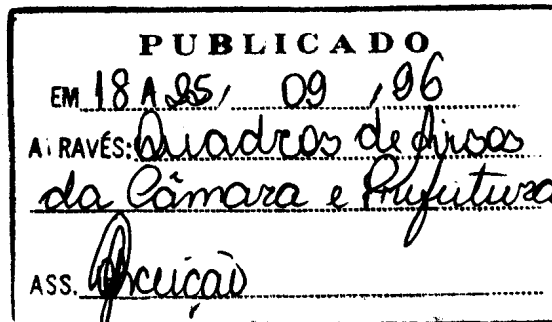 PUBLICADO
EM 18 A 25/ 09 /96
ATRAVÉS: Quadros de Avisos
da Câmara e Prefeitura
ASS. Conceição